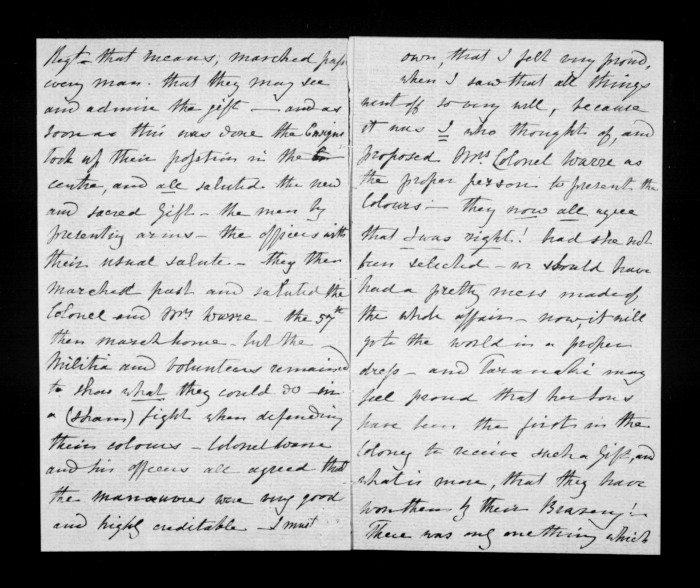 Regt - that means, marched past
every man. that they may see
and admire the gift - and as
soon as this was done the Ensigns
took up their position in the
centre, and all saluted the new
and sacred Gift - the men by
presenting arms - the officers with
their usual salute. - they then
marched past and saluted the
Colonel and Mrs Warre - the 57th
then march home - but the
Militia and Volunteers remained
to show what they could do - in
a (sham) fight when defending
their colours - Colonel Warre
and his officers all agreed that
the manœuvres were very good
and highly creditable - I must
own, that I felt very proud,
when I saw that all things
went off so very well, because
it was I who thought of, and
proposed Mrs Colonel Warre as
the proper person to present the
Colours - they now all agree
that I was right! had she not
been selected - we should have
had a pretty mess made of
the whole affair - now, it will
go to the world in a proper
dress - and Taranaki may
feel proud that her sons
have been the first in the
Colony to receive such a Gift, and
what is more, that they have
won them by their Bravery! -
There was only one thing which